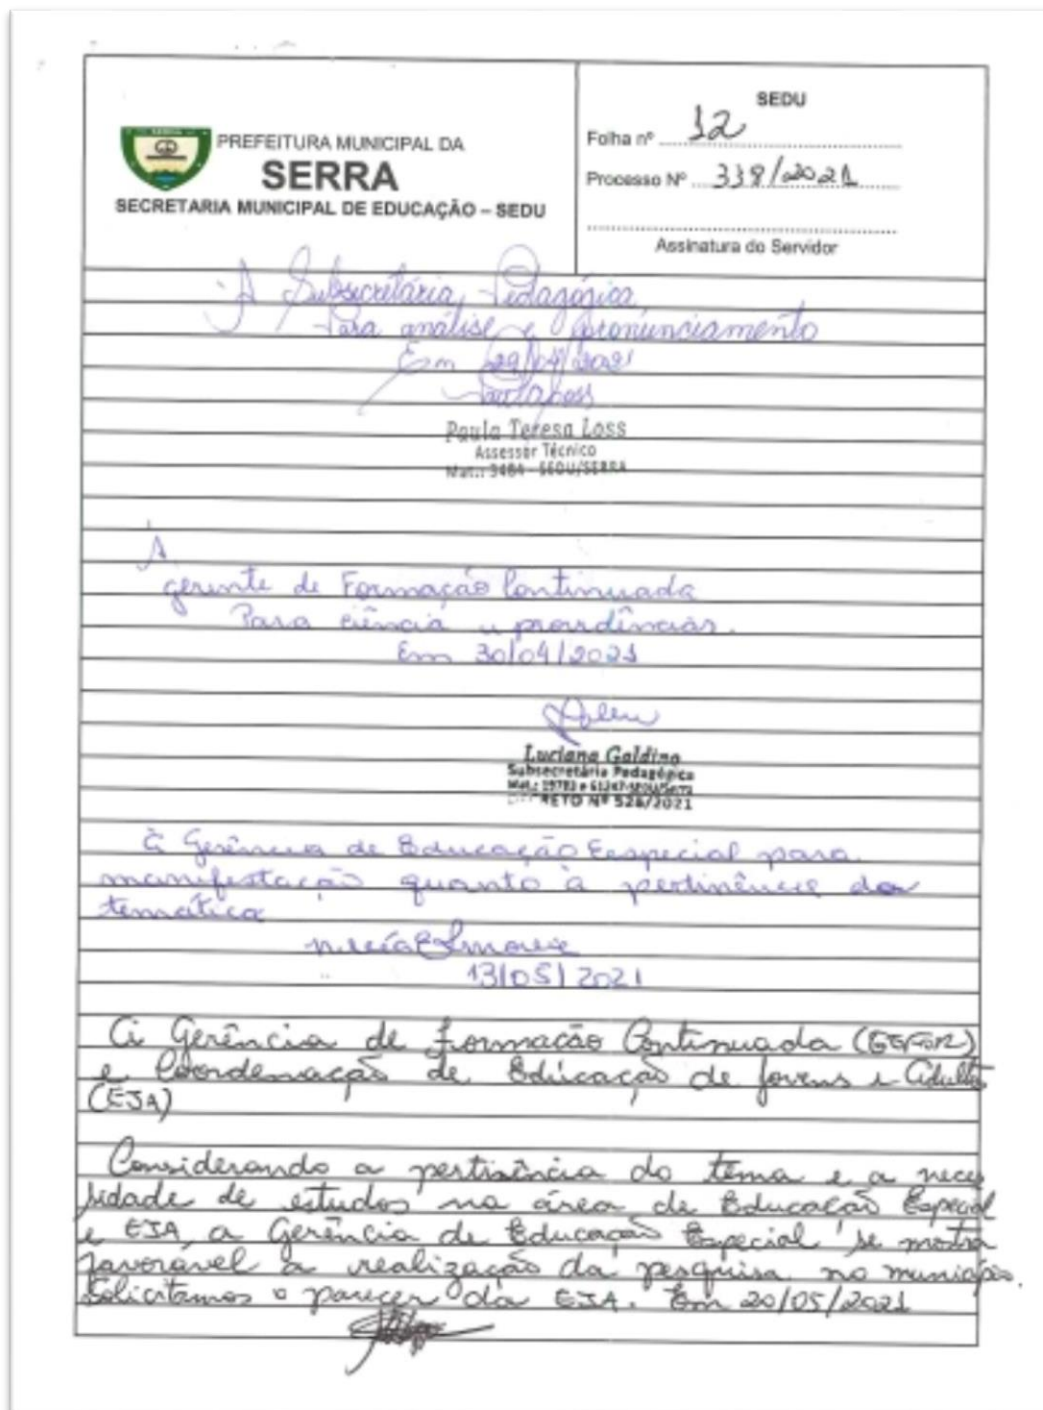 PREFEITURA MUNICIPAL DA
SERRA
SECRETARIA MUNICIPAL DE EDUCAÇÃO – SEDU
SEDU
Folha nº 12
Processo Nº 338/2021
Assinatura do Servidor
A Subsecretária Pedagógica
Para análise e pronunciamento
Em 29/04/2021
Paula Teresa Loss
Assessor Técnico
Mat.: 3484 - SEDU/SERRA
À
gerente de Formação Continuada
Para ciência e providências.
Em 30/04/2021
Luciana Galdino
Subsecretária Pedagógica
DECRETO Nº 528/2021
À Gerência de Educação Especial para
manifestação quanto à pertinência da
temática
13/05/2021
À Gerência de Formação Continuada (GEFOR)
e Coordenação de Educação de Jovens e Adultos
(EJA)
Considerando a pertinência do tema e a neces
sidade de estudos na área de Educação Especial
e EJA, a Gerência de Educação Especial se mostra
favorável à realização da pesquisa no município.
Solicitamos o parecer da EJA. Em 20/05/2021